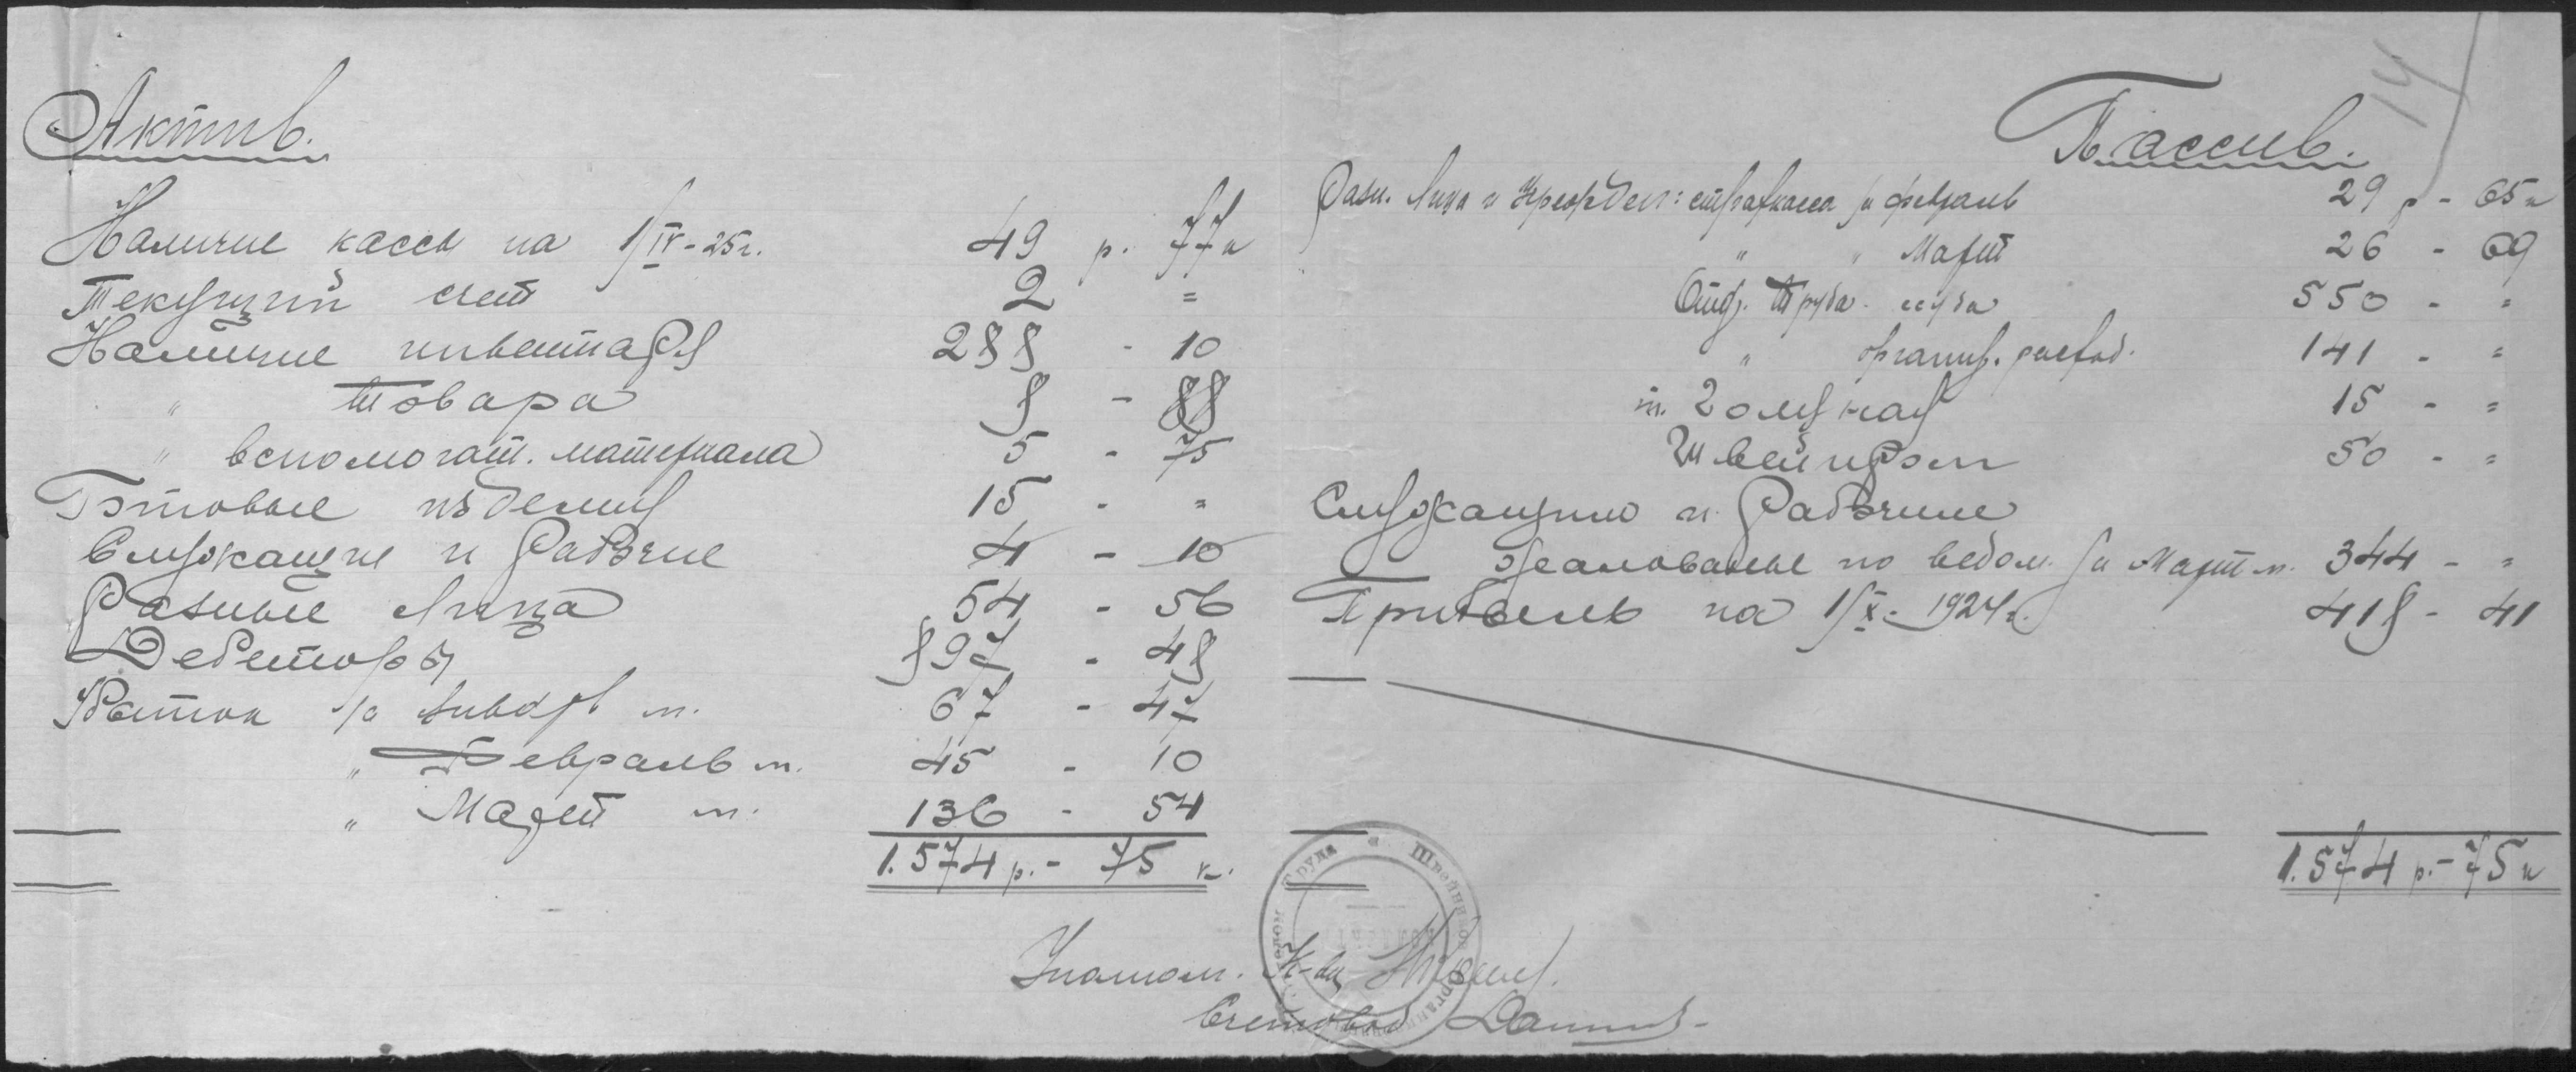 14
Актив.
Наличие кассы на 1/IV-25г. 49 р. 77 к
Текущий счет 2 "
Наличие инвентаря 288 - 10
" товара 8 - 88
" вспомогат. материала 5 - 75
Готовые изделия 15 - "
Служащие и Рабочие 4 - 10
Разные Лица 54 - 56
Дебеторы 897 - 48
Убыток за январь м. 67 - 47
" Февраль м. 45 - 10
" Март м. 136 - 54
1.574 р. - 75 к.
Пассив.
Разн. Лица и Учрежден: страхкасса за февраль 29 р - 65 к
" " Март 26 - 69
Отд. Труда ссуда 550 - "
" организ. расход. 141 - "
т. 15 - "
Швейпром 50 - "
Служащим и Рабочим
жалованье по ведом. за Март м. 344 - "
Прибыль на 1/X-1924г. 418 - 41
1.574 р. - 75 к
Уполном. К-ва
Счетовод